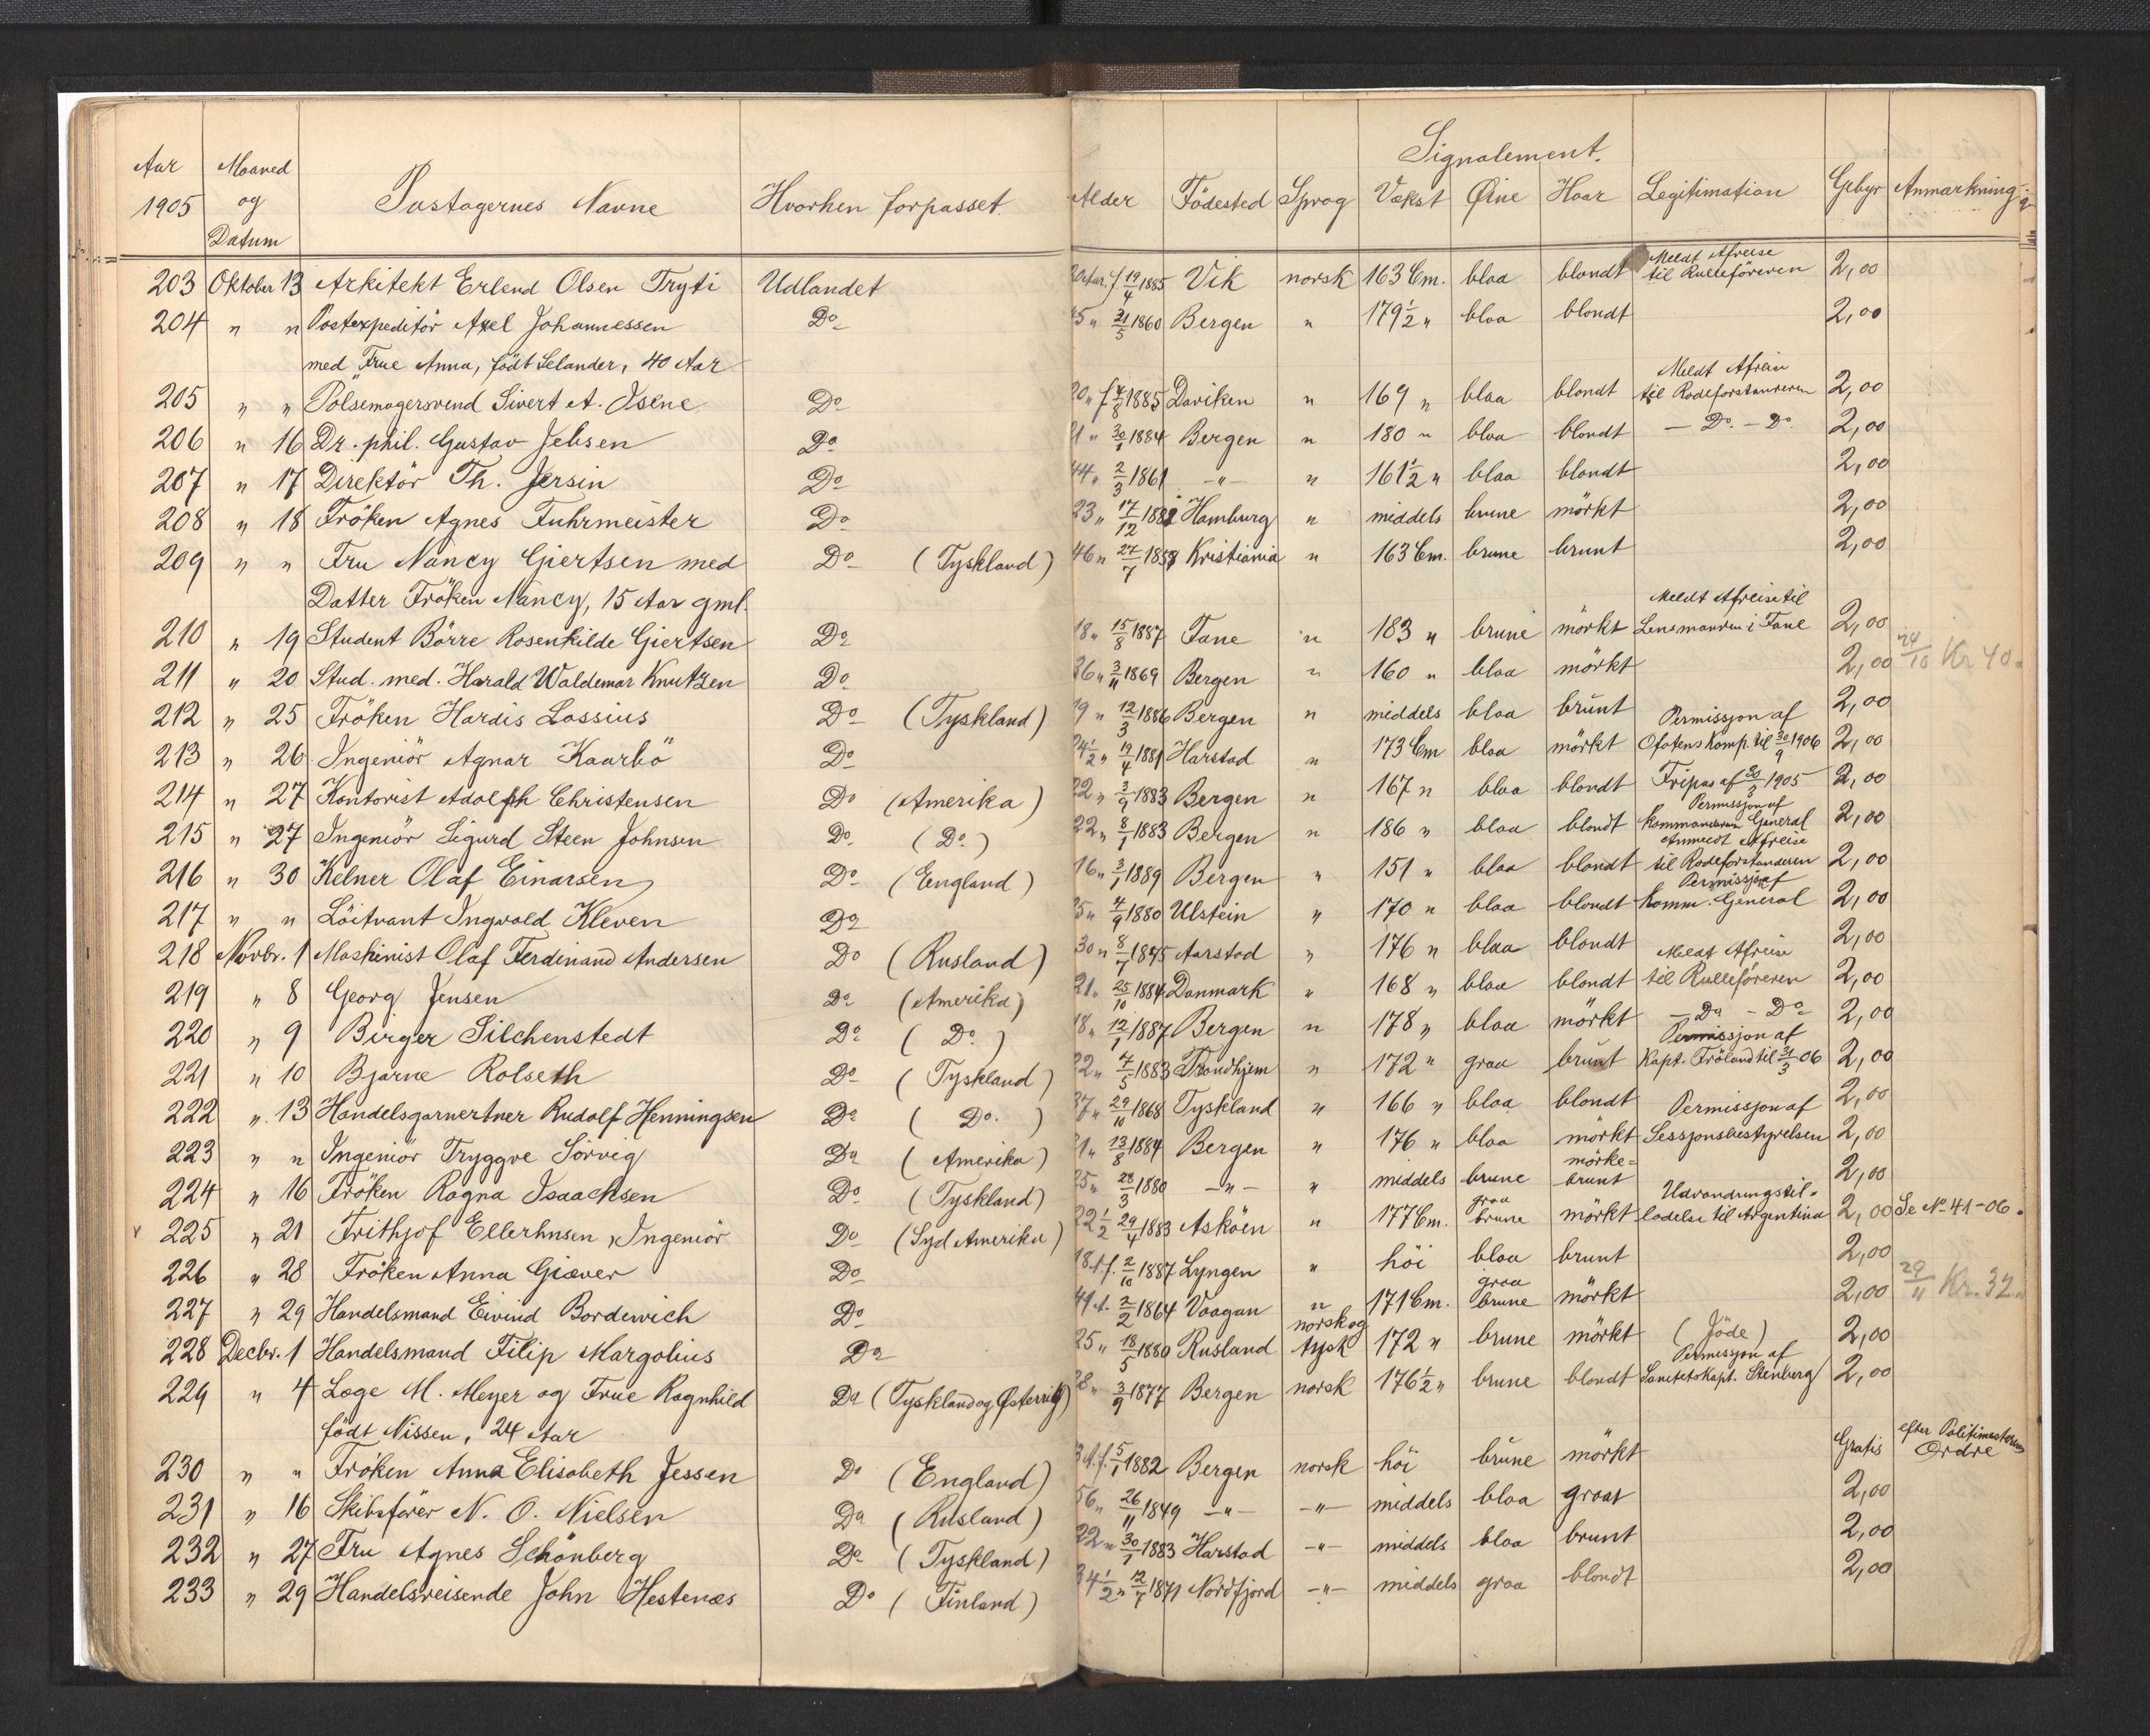 Signalement.
Aar 1905 Maaned og Datum Pastagernes Navne Hvorhen forpasset. Alder Födested Sprog Vækst Øine Haar Legitimation Gebyr Anmærkning
203 Oktober 13 Arkitekt Erlend Olsen Tryti Udlandet f 19/4 1885 Vik norsk 163 Cm. blaa blondt Meldt Afreise til Rulleföreren 2,00
204 " " Postexpeditör Axel Johannessen Do 45 " 31/5 1860 Bergen " 179 1/2 " blaa blondt 2,00
med Frue Anna, födt Selander, 40 Aar
205 " " Pölsemagersvend Sivert A. Isene Do 20 " f 4/8 1885 Daviken " 169 " blaa blondt Meldt Afreise til Rodeforstanderen 2,00
206 " 16 Dr. phil. Gustav Jebsen Do 21 " 30/1 1884 Bergen " 180 " blaa blondt — Do. — Do. 2,00
207 " 17 Direktör Th. Jersin Do 44 " 2/3 1861 — " — " 161 1/2 " blaa blondt 2,00
208 " 18 Fröken Agnes Fuhrmeister Do 23 " 17/12 Hamburg " middels brune mörkt 2,00
209 " " Fru Nancy Giertsen med Do (Tyskland) 46 " 27/7 Kristiania " 163 Cm. brune brunt 2,00
Datter Fröken Nancy, 15 Aar gml.
210 " 19 Student Börre Rosenkilde Giertsen Do 18 " 15/8 1887 Fane " 183 " brune mörkt Meldt Afreise til Lensmanden i Fane 2,00
211 " 20 Stud. med. Harald Waldemar Knutzen Do 36 " 3/11 1869 Bergen " 160 " blaa mörkt 2,00 24/10 Kr 40.
212 " 25 Fröken Hardis Lossius Do (Tyskland) 19 " 12/3 1886 Bergen " middels blaa brunt 2,00
213 " 26 Ingeniör Agnar Kaarbö Do 24 1/2 " 19/4 1881 Harstad " 173 Cm blaa mörkt Permissjon af Ofotens Komp. til 30/9 1906 2,00
214 " 27 Kontorist Adolph Christensen Do (Amerika) 22 " 3/9 1883 Bergen " 167 " blaa blondt Fripas af 20/3 1905 2,00
215 " 27 Ingeniör Sigurd Steen Johnsen Do (Do.) 22 " 8/1 1883 Bergen " 186 " blaa blondt Permissjon af Kommanderende General 2,00
216 " 30 Kelner Olaf Einarsen Do (England) 16 " 3/1 1889 Bergen " 151 " blaa blondt Anmeldt Afreise til Rodeforstanderen 2,00
217 " " Löitnant Ingvald Kleven Do 25 " 4/9 1880 Ulstein " 170 " blaa blondt Permissjon af Komm. General 2,00
218 Novbr. 1 Maskinist Olaf Ferdinand Andersen Do (Rusland) 30 " 8/7 Aarstad " 176 " blaa blondt 2,00
219 " 8 Georg Jensen Do (Amerika) 21 " 25/10 1884 Danmark " 168 " blaa blondt Meldt Afreise til Rulleföreren 2,00
220 " 9 Birger Silchenstedt Do (Do.) 18 " 12/1 1887 Bergen " 178 " blaa mörkt — Do — Do 2,00
221 " 10 Bjarne Rolseth Do (Tyskland) 22 " 7/5 1883 Trondhjem " 172 " graa brunt Permissjon af Kapt. Fröland til 31/3 06 2,00
222 " 13 Handelsgarnertner Rudolf Henningsen Do (Do.) 37 " 29/10 1868 Tyskland " 166 " blaa blondt 2,00
223 " " Ingeniör Tryggve Sörvig Do (Amerika) 21 " 13/8 1884 Bergen " 176 " blaa mörkt Permissjon af Sessjonsbestyrelsen 2,00
224 " 16 Fröken Ragna Isaachsen Do (Tyskland) 25 " 28/3 1880 — " — " middels brune mörke= brunt 2,00
225 " 21 Frithjof Ellerhusen, Ingeniör Do (Syd Amerika) 22 1/2 29/4 1883 Asköen " 177 Cm. graa brune mörkt Udvandringstil= ladelse til Argentina 2,00 Se No 41-06.
226 " 28 Fröken Anna Giæver Do 18 A. f. 2/10 1887 Lyngen " höi blaa brunt 2,00
227 " 29 Handelsmand Eivind Bordewich Do 41 A. 2/2 1864 Vaagan " 171 Cm. graa brune mörkt 2,00 29/11 Kr. 32.
228 Decbr. 1 Handelsmand Filip Margolius Do 25 " 18/5 1880 Rusland norsk og tysk 172 " brune mörkt (Jöde) 2,00
229 " 4 Læge M. Meyer og Frue Ragnhild Do (Tyskland og Østerrig) 28 " 3/9 1877 Bergen norsk 176 1/2 " brune blondt Permissjon af Sanitetskapt. Stenberg 2,00
födt Nissen, 24 Aar
230 " " Fröken Anna Elisabeth Jessen Do (England) A. f. 5/1 1882 Bergen norsk höi brune mörkt Gratis efter Politimesterens Ordre
231 " 16 Skibsförer N. O. Nielsen Do (Rusland) 56 " 26/11 1849 — " — — " — middels blaa graat 2,00
232 " 27 Fru Agnes Schönberg Do (Tyskland) 22 " 30/1 1883 Harstad — " — middels blaa brunt 2,00
233 " 29 Handelsreisende John Hestenæs Do (Finland) 34 1/2 " 12/7 1871 Nordfjord — " — middels graa blondt 2,00